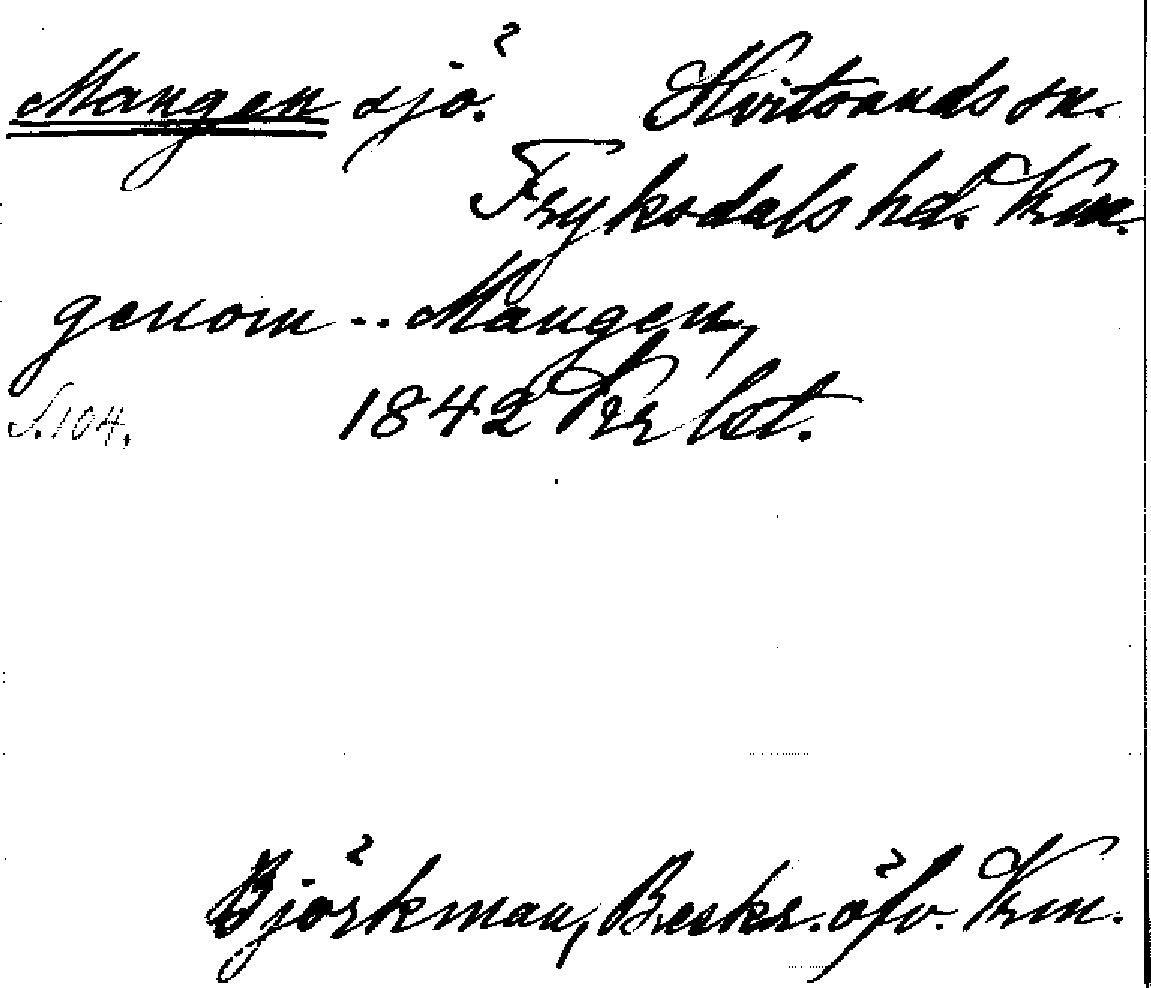 Mangen sjö. Hvitsands sn.
Fryksdals hd. Vrm.
genom -- Mangen,
S. 104. 1842 Vrr bet.
Björkman, Beskr. öfv. Vrm.